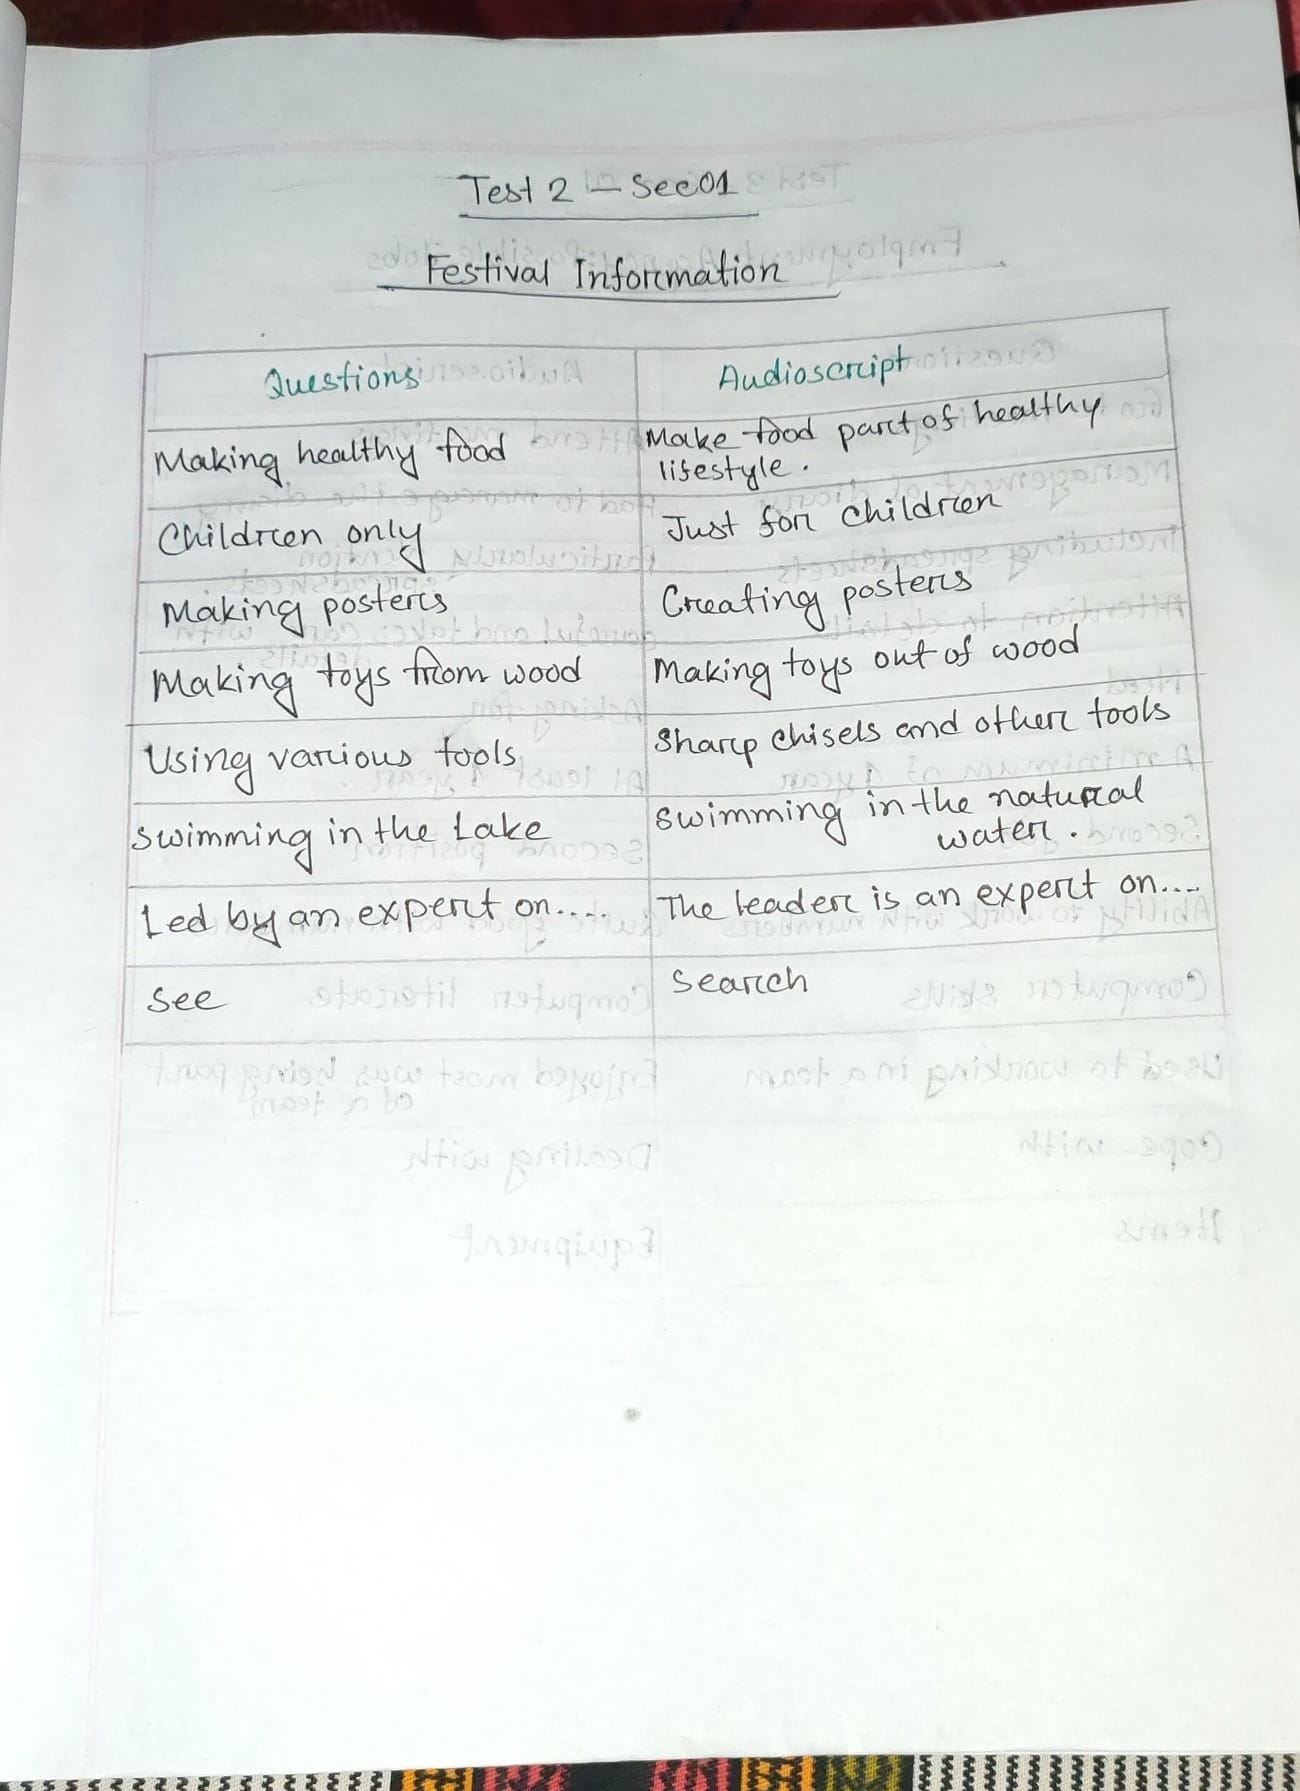 Test 2 – Sec01
Festival Information
Questions Audioscript
Making healthy food Make food part of healthy
lifestyle.
Children only Just for children
Making posters Creating posters
Making toys from wood Making toys out of wood
Using various tools Sharp chisels and other tools
Swimming in the Lake Swimming in the natural
water.
Led by an expert on.... The leader is an expert on....
See Search